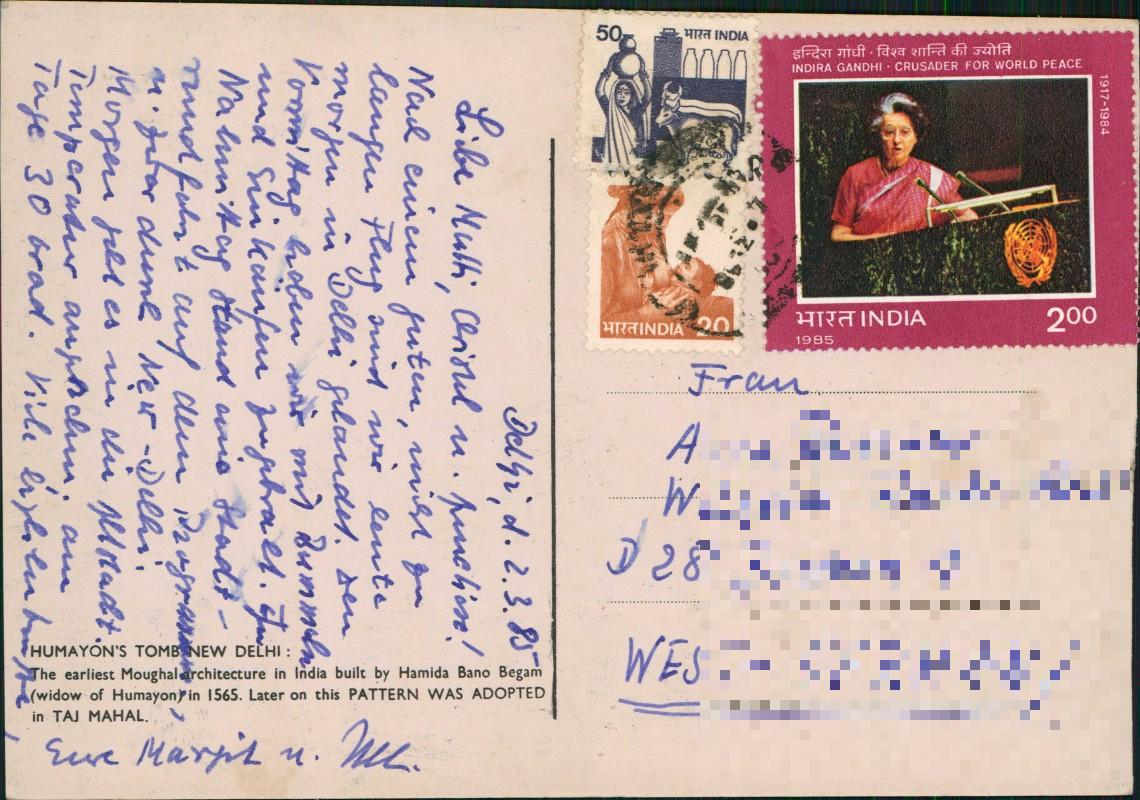 Delhi, d. 2.3.85
Liebe Mutti, Christel u.
Nach einem guten, nicht zu
langen Flug sind wir heute
morgen in Delhi gelandet. Den
Vormittag haben wir mit Bummeln
und Einkaufen zugebracht. Am
Nachmittag stand eine Stadt-
rundfahrt auf dem Programm,
u. zwar durch New-Delhi.
Morgen geht es in die Altstadt.
Temperatur angenehm, am
Tage 30 Grad. Viele
Eure Margit u.
HUMAYON'S TOMB NEW DELHI :
The earliest Moughal architecture in India built by Hamida Bano Begam
(widow of Humayon) in 1565. Later on this PATTERN WAS ADOPTED
in TAJ MAHAL.
50 भारत INDIA
भारत INDIA 20
इन्दिरा गांधी · विश्व शान्ति की ज्योति
INDIRA GANDHI · CRUSADER FOR WORLD PEACE
1917-1984
भारत INDIA 2.00
1985
Frau
A
W
D 28
WES